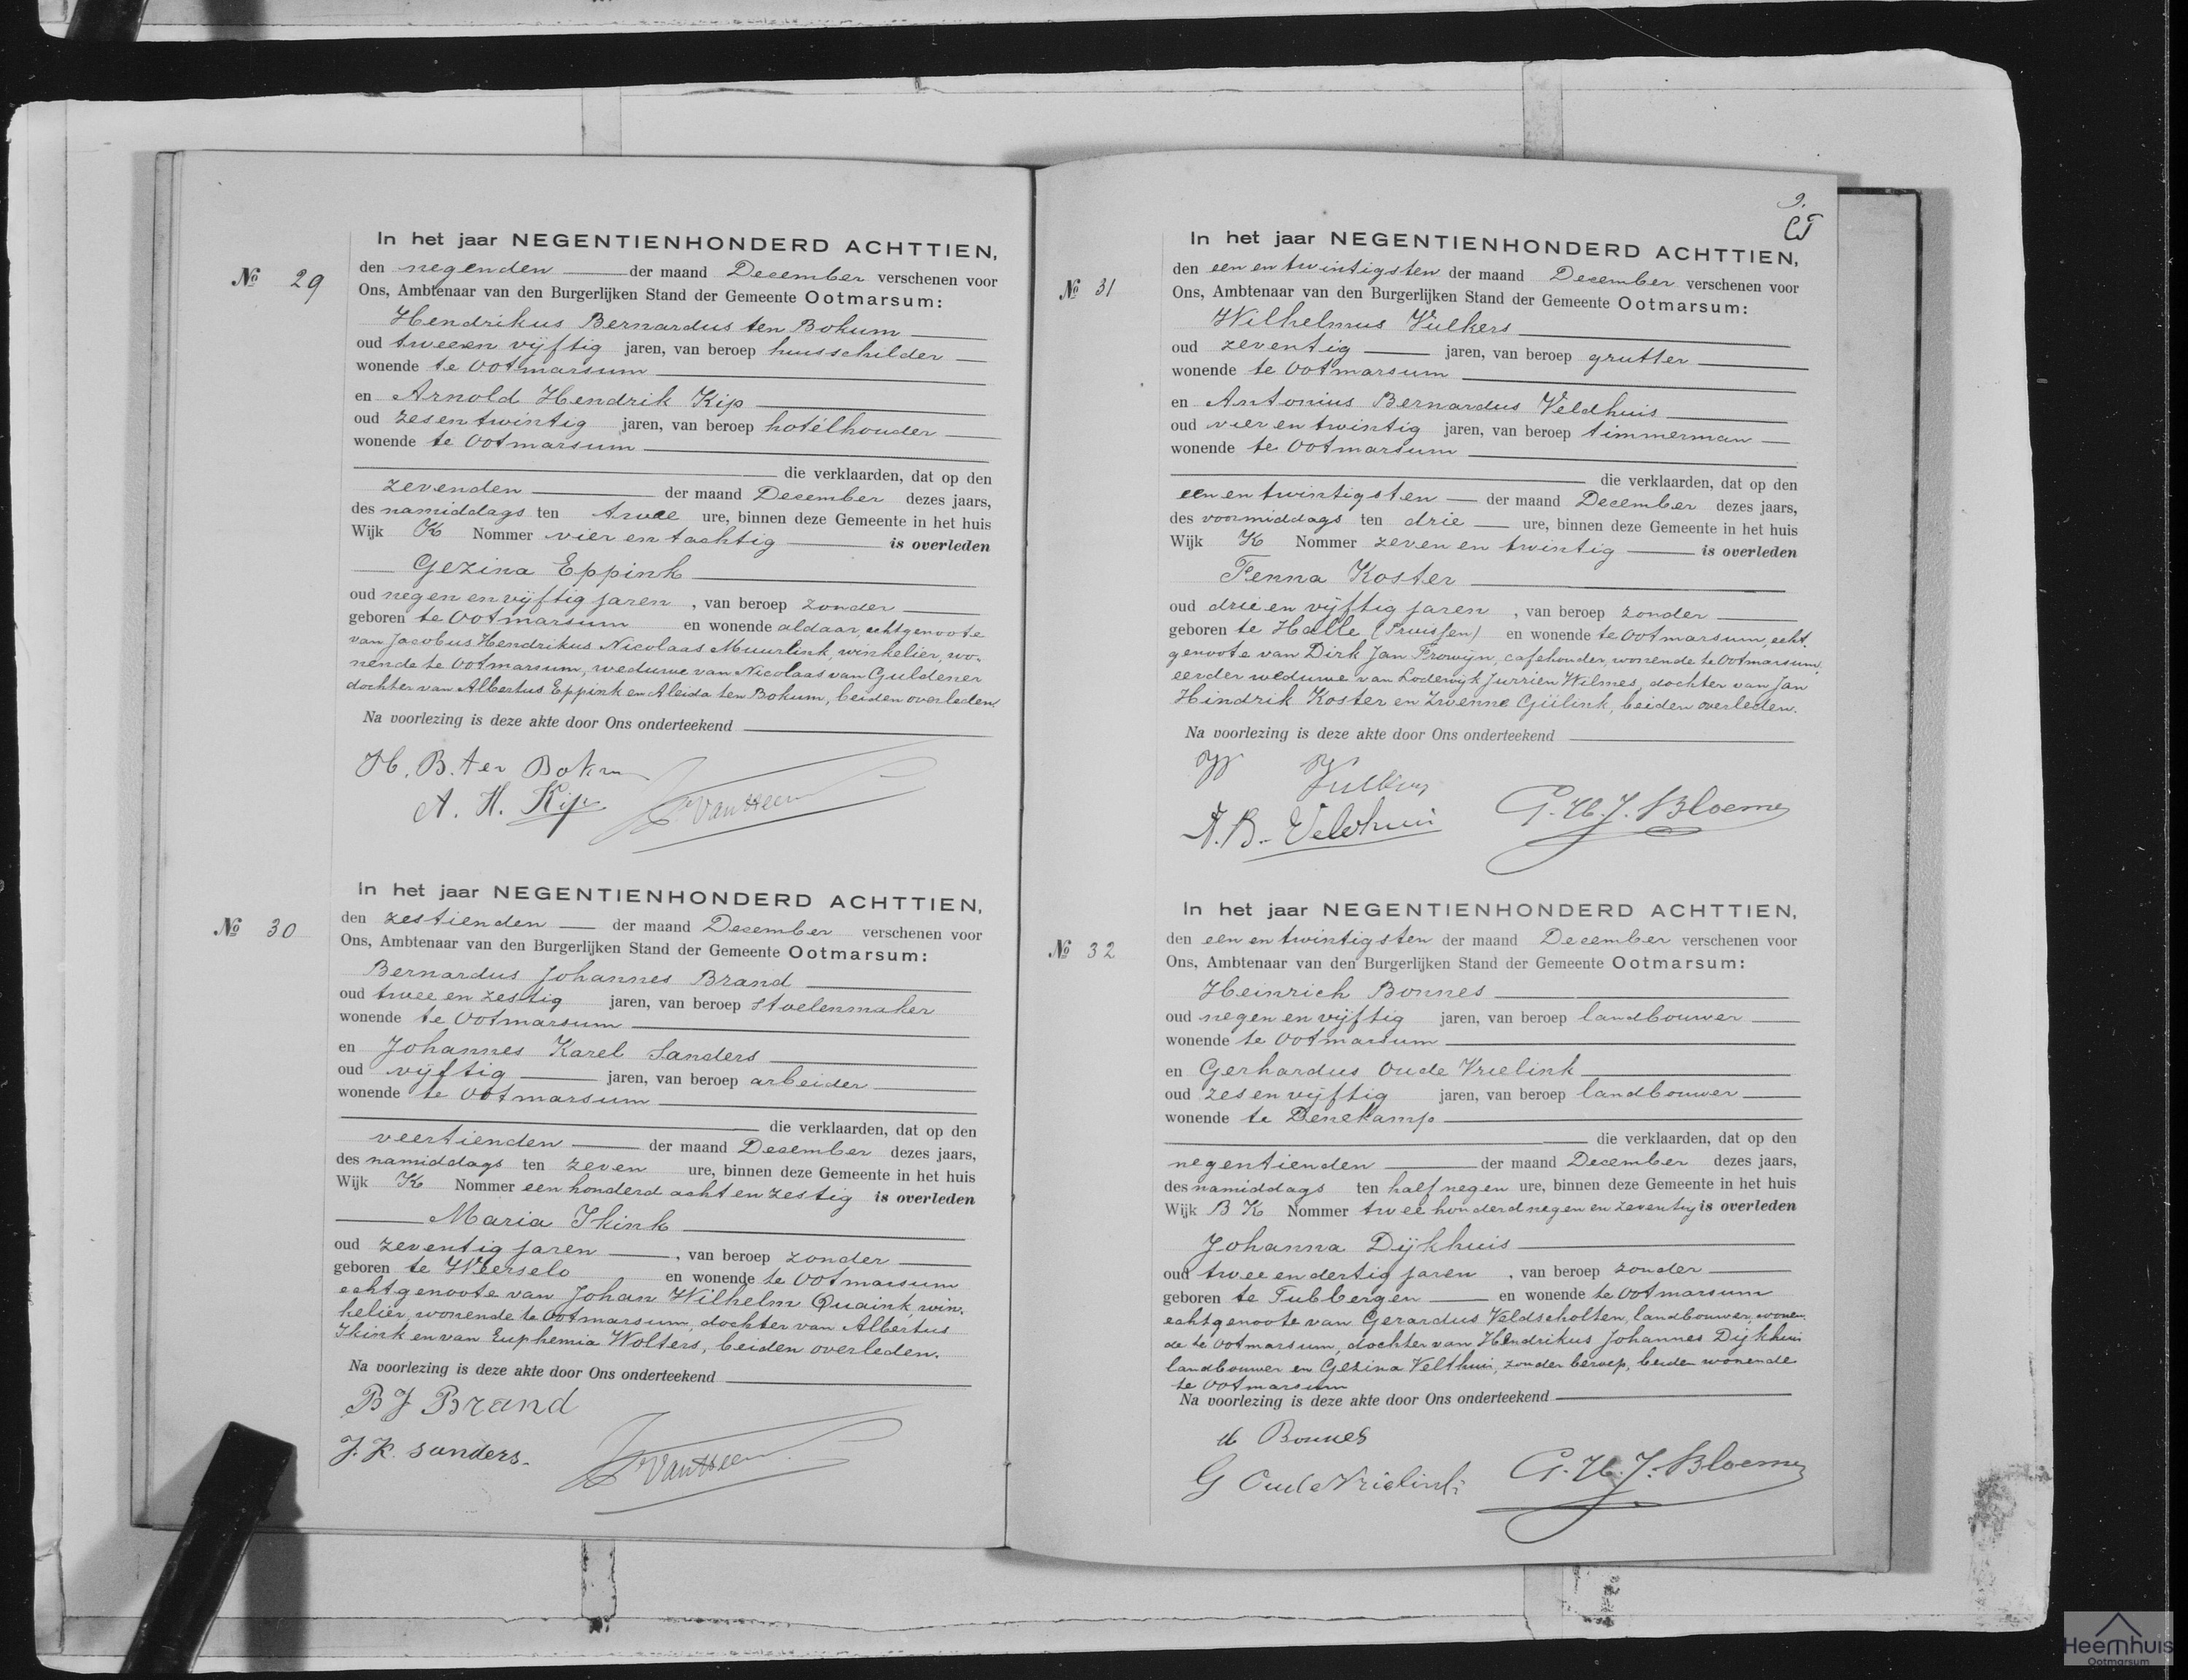 In het jaar NEGENTIENHONDERD ACHTTIEN,
№ 29
den negenden der maand December verschenen voor
Ons, Ambtenaar van den Burgerlijken Stand der Gemeente Ootmarsum:
Hendrikus Bernardus ten Bokum
oud tweeen vijftig jaren, van beroep huisschilder
wonende te Ootmarsum
en Arnold Hendrik Kip
oud zesentwintig jaren, van beroep hotélhouder
wonende te Ootmarsum
die verklaarden, dat op den
zevenden der maand December dezes jaars,
des namiddags ten twee ure, binnen deze Gemeente in het huis
Wijk K Nommer vier en tachtig is overleden
Gezina Eppink
oud negen en vijftig jaren, van beroep zonder
geboren te Ootmarsum en wonende aldaar, echtgenoote
van Jacobus Hendrikus Nicolaas Muurlink, winkelier, wo-
nende te Ootmarsum, weduwe van Nicolaas van Guldener
dochter van Albertus Eppink en Aleida ten Bokum, beiden overleden.
Na voorlezing is deze akte door Ons onderteekend
H. B. ter Bokum
A. H. Kip
In het jaar NEGENTIENHONDERD ACHTTIEN,
№ 30
den zestienden der maand December verschenen voor
Ons, Ambtenaar van den Burgerlijken Stand der Gemeente Ootmarsum:
Bernardus Johannes Brand
oud twee en zestig jaren, van beroep stoelenmaker
wonende te Ootmarsum
en Johannes Karel Sanders
oud vijftig jaren, van beroep arbeider
wonende te Ootmarsum
die verklaarden, dat op den
veertienden der maand December dezes jaars,
des namiddags ten zeven ure, binnen deze Gemeente in het huis
Wijk K Nommer een honderd acht en zestig is overleden
Maria Ikink
oud zeventig jaren, van beroep zonder
geboren te Weerselo en wonende te Ootmarsum
echtgenoote van Johan Wilhelm Quaink, win-
kelier, wonende te Ootmarsum, dochter van Albertus
Ikink en van Euphemia Wolters, beiden overleden.
Na voorlezing is deze akte door Ons onderteekend
B J Brand
J. K. Sanders.
9.
In het jaar NEGENTIENHONDERD ACHTTIEN,
№ 31
den een en twintigsten der maand December verschenen voor
Ons, Ambtenaar van den Burgerlijken Stand der Gemeente Ootmarsum:
Wilhelmus Vulkers
oud zeventig jaren, van beroep grutter
wonende te Ootmarsum
en Antonius Bernardus Veldhuis
oud vier en twintig jaren, van beroep timmerman
wonende te Ootmarsum
die verklaarden, dat op den
een en twintigsten der maand December dezes jaars,
des voormiddags ten drie ure, binnen deze Gemeente in het huis
Wijk K Nommer zeven en twintig is overleden
Fenna Koster
oud drie en vijftig jaren, van beroep zonder
geboren te Halle (Pruissen) en wonende te Ootmarsum, echt-
genoote van Dirk Jan Frowijn, cafehouder, wonende te Ootmarsum,
eerder weduwe van Lodewijk Jurrien Wilmes, dochter van Jan
Hindrik Koster en Zwenne Gülink, beiden overleden.
Na voorlezing is deze akte door Ons onderteekend
W Vulkers
A. B. Veldhuis
G. H. J. Bloemen
In het jaar NEGENTIENHONDERD ACHTTIEN,
№ 32
den een en twintigsten der maand December verschenen voor
Ons, Ambtenaar van den Burgerlijken Stand der Gemeente Ootmarsum:
Heinrich Bonnes
oud negen en vijftig jaren, van beroep landbouwer
wonende te Ootmarsum
en Gerhardus Oude Vrielink
oud zes en vijftig jaren, van beroep landbouwer
wonende te Denekamp
die verklaarden, dat op den
negentienden der maand December dezes jaars,
des namiddags ten half negen ure, binnen deze Gemeente in het huis
Wijk B K Nommer twee honderd negen en zeventig is overleden
Johanna Dijkhuis
oud twee en dertig jaren, van beroep zonder
geboren te Tubbergen en wonende te Ootmarsum
echtgenoote van Gerardus Veldscholten, landbouwer, wonen-
de te Ootmarsum, dochter van Hendrikus Johannes Dijkhuis
landbouwer en Gezina Velthuis, zonder beroep, beiden wonende
te Ootmarsum
Na voorlezing is deze akte door Ons onderteekend
H Bonnes
G Oude Vrielink
G. H. J. Bloemen
Heemhuis
Ootmarsum